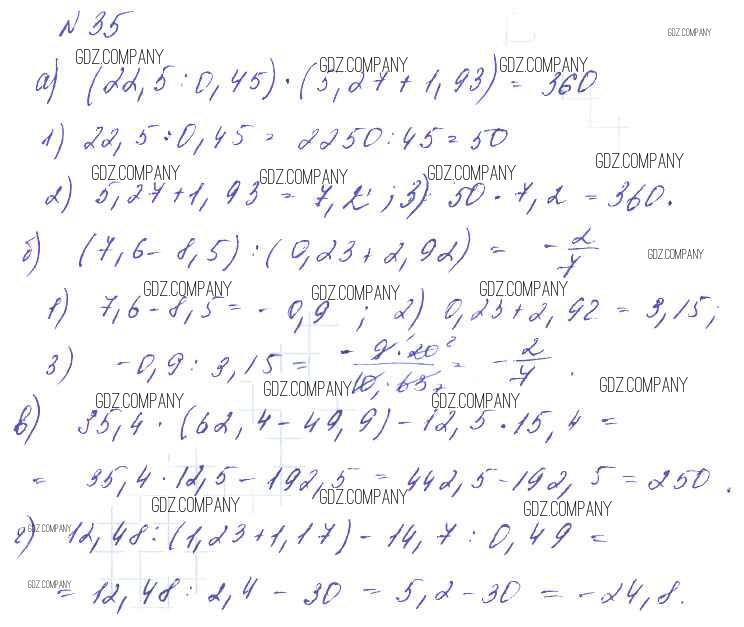 № 35
GDZ.COMPANY GDZ.COMPANY GDZ.COMPANY GDZ.COMPANY
а) (22,5 : 0,45) · (5,27 + 1,93) = 360
1) 22,5 : 0,45 = 2250 : 45 = 50
GDZ.COMPANY GDZ.COMPANY GDZ.COMPANY GDZ.COMPANY
2) 5,27 + 1,93 = 7,2 ; 3) 50 · 7,2 = 360.
б) (7,6 - 8,5) : (0,23 + 2,92) = - 2/7
GDZ.COMPANY
GDZ.COMPANY GDZ.COMPANY GDZ.COMPANY
1) 7,6 - 8,5 = - 0,9 ; 2) 0,23 + 2,92 = 3,15 ;
3) - 0,9 : 3,15 = - 9 · 20 ² / 10 · 63 ₇ = - 2/7 .
GDZ.COMPANY GDZ.COMPANY GDZ.COMPANY GDZ.COMPANY
в) 35,4 · (62,4 - 49,9) - 12,5 · 15,4 =
= 35,4 · 12,5 - 192,5 = 442,5 - 192,5 = 250 .
GDZ.COMPANY GDZ.COMPANY GDZ.COMPANY
GDZ.COMPANY
г) 12,48 : (1,23 + 1,17) - 14,7 : 0,49 =
GDZ.COMPANY
= 12,48 : 2,4 - 30 = 5,2 - 30 = - 24,8.